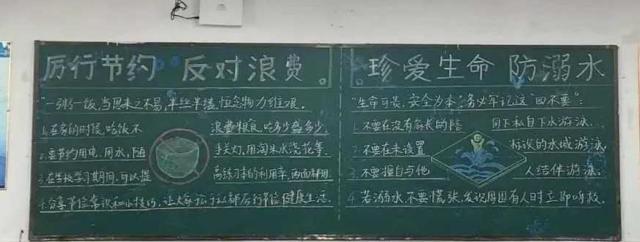 厉行节约 反对浪费
"一粥一饭,当思来之不易,半丝半缕,恒念物力维艰。
1.在家的时候,吃饭不浪费粮食,吃多少盛多少。
2.要节约用电、用水,随手关灯,用淘米水浇花等。
3.在学校学习期间,可以提高练习本的利用率,两面都用。
4.分享节俭常识和小技巧,让大家
厉行节俭健康生活。
珍爱生命 防溺水
"生命可贵,安全为本",务必牢记这"四不要":
1.不要在没有家长的陪同下私自下水游泳。
2.不要在未设置标识的水域游泳。
3.不要擅自与他人结伴游泳。
4.若溺水,不要慌张,发现周围有人时立即呼救。